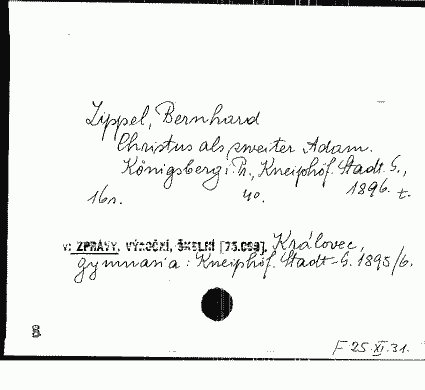 Zippel, Bernhard
Christus als zweiter Adam.
Königsberg i. Pr., Kneiphöf. Stadt. G.,
16s. 4o. 1896. t.
v: ZPRÁVY, VÝROČNÍ, ŠKOLNÍ [75.C59], Královec,
gymnasia: Kneiphöf. Stadt-G. 1895/6.
F 25.XI.31.